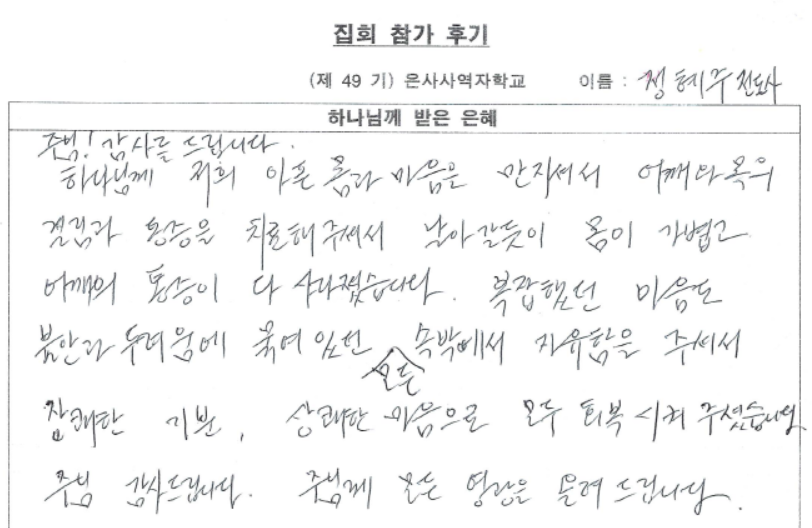 집회 참가 후기
(제 49 기) 은사사역자학교 이름 : 정혜주 전도사
하나님께 받은 은혜
주님! 감사를 드립니다.
하나님께 저희 아픈 몸과 마음을 만지셔서 어깨와 목의
결림과 통증을 치료해주셔서 날아갈듯이 몸이 가볍고
어깨의 통증이 다 사라졌습니다. 복잡했던 마음도
불안과 두려움에 묶여 있던 속박에서 자유함을 주셔서
모든
참쾌한 기분, 상쾌한 마음으로 모두 회복 시켜 주셨습니다
주님 감사드립니다. 주님께 모든 영광을 올려 드립니다.